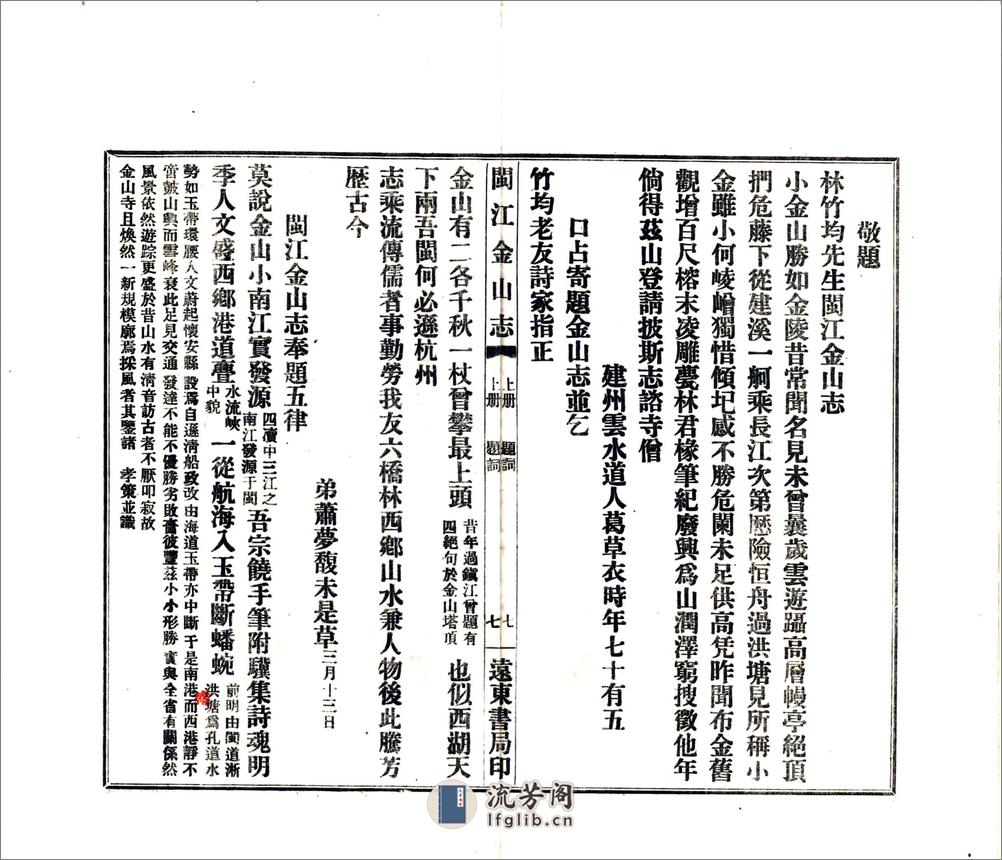 敬題
林竹均先生閩江金山志
小金山勝如金陵昔常聞名見未曾曩歲雲遊躡高層幔亭絕頂
捫危藤下從建溪一舸乘長江次第歷險恒舟過洪塘見所稱小
金雖小何崚嶒獨惜傾圮慼不勝危闌未足供高凭昨聞布金舊
觀增百尺榕末凌雕甍林君椽筆紀廢興爲山潤澤窮搜徵他年
倘得茲山登請披斯志諮寺僧
建州雲水道人葛草衣時年七十有五
口占寄題金山志並乞
竹均老友詩家指正
閩江金山志 上册 題詞 七 遠東書局印
上册 題詞 七
金山有二各千秋一杖曾攀最上頭 昔年過鎮江曾題有四絕句於金山塔頂 也似西湖天
下兩吾閩何必遜杭州
志乘流傳儒者事勤勞我友六橋林西鄉山水兼人物後此騰芳
歷古今
弟蕭夢馥未是草三月十三日
閩江金山志奉題五律
莫說金山小南江實發源 四瀆中三江之南江發源于閩 吾宗饒手筆附驥集詩魂明
季人文盛西鄉港道亹 水流峽中貌 一從航海入玉帶斷蟠蜿 前明由閩道浙洪塘爲孔道水
勢如玉帶環腰人文蔚起懷安縣設焉自遜淸船政改由海道玉帶亦中斷于是南港而西港靜不
啻皷山興而雪峰衰此足見交通發達不能不優勝劣敗嗇彼豐茲小小形勝實與全省有關係然
風景依然遊踪更盛於昔山水有淸音訪古者不厭叩寂故
金山寺且煥然一新規模廓焉採風者其鑒諸 孝策並識
流芳阁
lfglib.cn